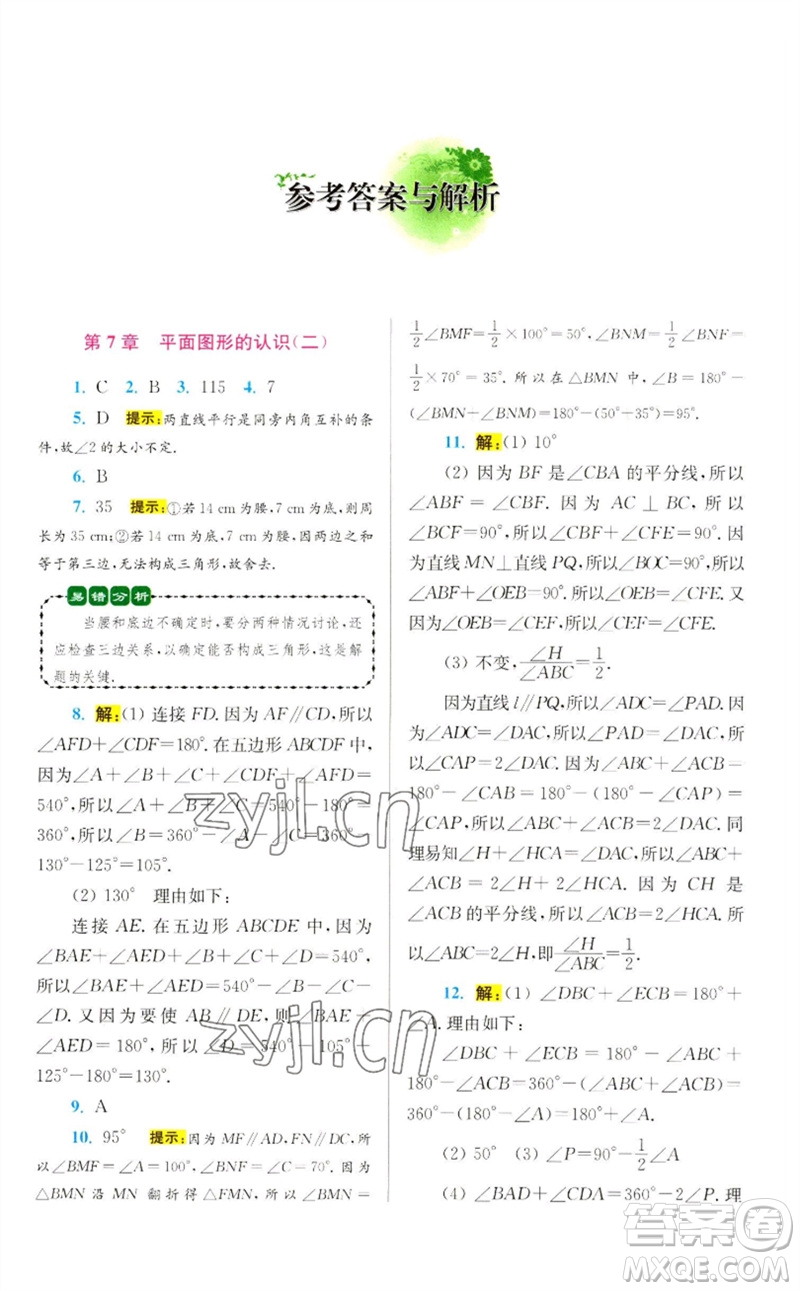 参考答案与解析
第7章 平面图形的认识(二)
1. C 2. B 3. 115 4. 7
5. D 提示:两直线平行是同旁内角互补的条
件,故∠2的大小不定.
6. B
7. 35 提示:①若14 cm为腰,7 cm为底,则周
长为35 cm;②若7 cm为腰,因两边之和
等于第三边,无法构成三角形,故舍去.
易错分析
当腰和底边不确定时,要分两种情况讨论,还
应检查三边关系,以确定能否构成三角形,这是解
题的关键.
8. 解:(1) 连接FD.因为AF∥CD,所以
∠AFD+∠CDF=180°.在五边形ABCDF中,
因为∠A+∠B+∠C+∠CDF+∠AFD=
540°,所以∠A+∠B+∠C=540°-180°=
360°,所以∠B=360°-∠A-∠C=360°-
130°-125°=105°.
(2) 130° 理由如下:
连接AE.在五边形ABCDE中,因为
∠BAE+∠AED+∠B+∠C+∠D=540°,
所以∠BAE+∠AED=540°-∠B-∠C-
∠D.又因为AB∥DE,则∠BAE+
∠AED=180°,所以∠D=540°-105°-
125°-180°=130°.
9. A
10. 95° 提示:因为MF∥AD,FN∥DC,所
以∠BMF=∠A=100°,∠BNF=∠C=70°.因为
△BMN沿MN翻折得△FMN,所以∠BMN=
1/2∠BMF=1/2×100°=50°,∠BNM=1/2∠BNF=
1/2×70°=35°.所以在△BMN中,∠B=180°-
(∠BMN+∠BNM)=180°-(50°-35°)=95°.
11. 解:(1) 10°
(2) 因为BF是∠CBA的平分线,所以
∠ABF=∠CBF.因为AC⊥BC,所以
∠BCF=90°,所以∠CBF+∠CFE=90°.因
为直线MN⊥直线PQ,所以∠BOC=90°,所以
∠ABF+∠OEB=90°,所以∠OEB=∠CFE.又
因为∠OEB=∠CEF,所以∠CEF=∠CFE.
(3) 不变,∠H/∠ABC=1/2.
因为直线l∥PQ,所以∠ADC=∠PAD.因
为∠ADC=∠DAC,所以∠PAD=∠DAC,所
以∠CAP=2∠DAC.因为∠CAP=
180°-∠CAB=180°-(180°-∠ABC-
∠ACB),所以∠ABC+∠ACB=2∠DAC.同
理易知∠H+∠HCA=∠DAC,所以∠ABC+
∠ACB=2∠H+2∠HCA.因为CH是
∠ACB的平分线,所以∠ACB=2∠HCA.所
以∠ABC=2∠H,即∠H/∠ABC=1/2.
12. 解:(1) ∠DBC+∠ECB=180°+
∠A.理由如下:
∠DBC+∠ECB=180°-∠ABC+
180°-∠ACB=360°-(∠ABC+∠ACB)=
360°-(180°-∠A)=180°+∠A.
(2) 50° (3) ∠P=90°-1/2∠A
(4) ∠BAD+∠CDA=360°-2∠P.理
zyjl.cn
zyjl.cn
答案卷
MXQE.COM